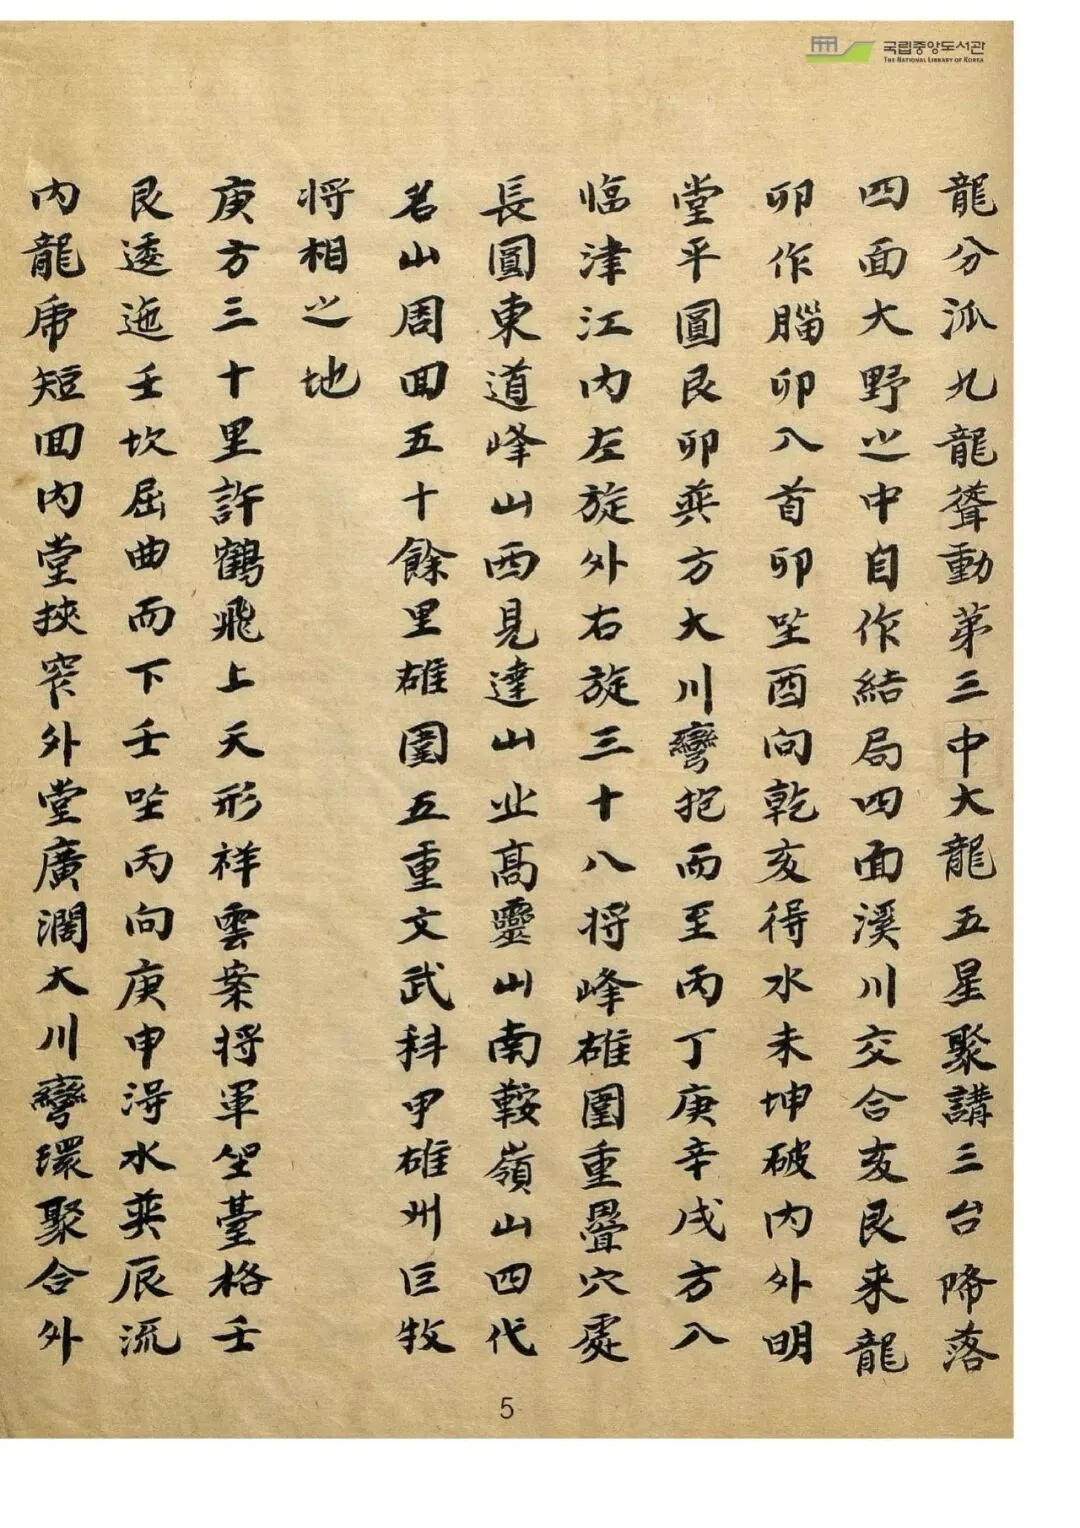 국립중앙도서관
THE NATIONAL LIBRARY OF KOREA
龍分派九龍聳動第三中大龍五星聚講三台降落
四面大野之中自作結局四面溪川交合亥艮来龍
卯作腦卯入首卯坐酉向乾亥得水未坤破内外明
堂平圓艮卯巽方大川彎抱而至丙丁庚辛戌方入
臨津江内左旋外右旋三十八将峰雄圍重疊穴處
長圓東道峰山西見達山北高靈山南鞍嶺山四代
名山周回五十餘里雄圍五重文武科甲雄州巨牧
将相之地
庚方三十里許鶴飛上天形祥雲案将軍坐臺格壬
艮逶迤壬坎屈曲而下壬坐丙向庚申淂水巽辰流
内龍虎短回内堂挾窄外堂廣濶大川彎環聚合外
5